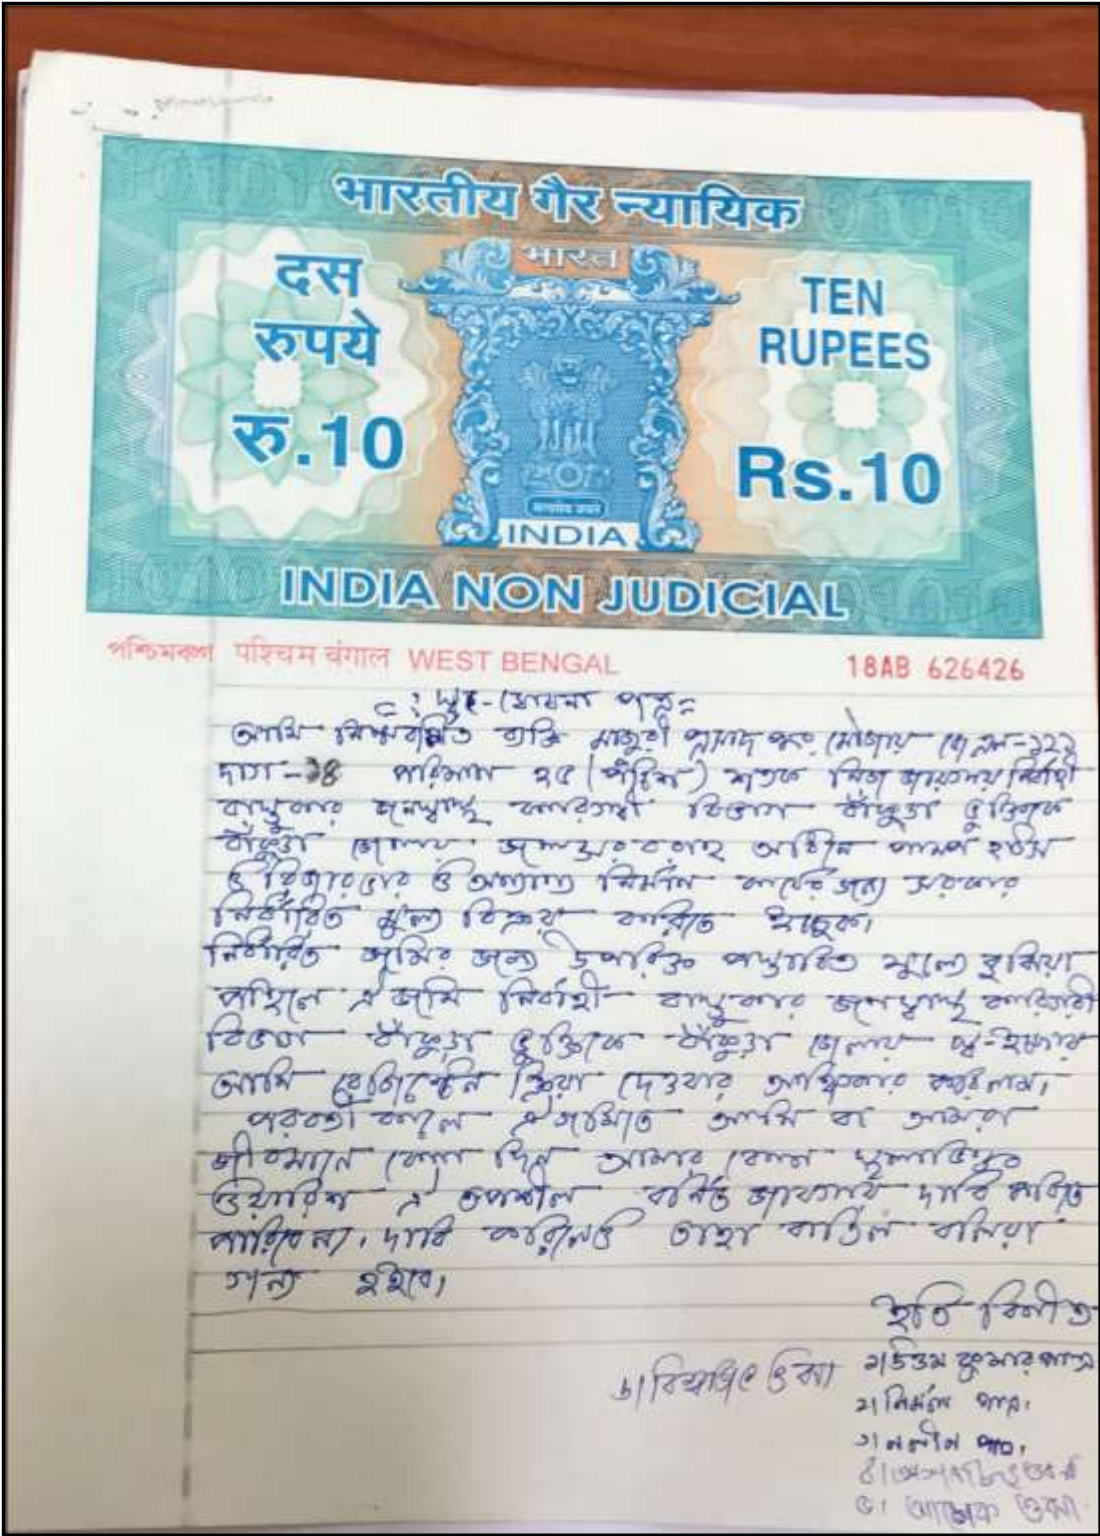 भारतीय गैर न्यायिक
भारत
दस
रुपये
रु.10
TEN
RUPEES
Rs.10
सत्यमेव जयते
INDIA
INDIA NON JUDICIAL
পশ্চিমবঙ্গ पश्चिम बंगाल WEST BENGAL 18AB 626426
পত্র
আমি নিম্নবর্ণিত ব্যক্তি মৌজায় জে এল-১২২
দাগ-18 পরিমান ২৫ (পঁচিশ) শতক নিজ জায়গায় নির্বাহী
বাস্তুকার জনস্বাস্থ্য কারিগরী বিভাগ বাঁকুড়া ভুক্তিকে
বাঁকুড়া জেলায় জলসরবরাহ পাম্প হাউস
ও রিজারভার ও অন্যান্য নির্মান কার্যের জন্য সরকার
নির্ধারিত মূল্যে বিক্রয় করিতে ইচ্ছুক।
নির্ধারিত জমির জন্য উপরিউক্ত প্রস্তাবিত মূল্যে বুঝিয়া
পাইলে ঐ জমি নির্বাহী বাস্তুকার জনস্বাস্থ্য কারিগরী
বিভাগ বাঁকুড়া ভুক্তিকে বাঁকুড়া জেলায় স্ব-ইচ্ছায়
আমি দেওয়ার অঙ্গিকার করিলাম।
পরবর্তী কালে ঐ জমিতে আমি বা আমার
কোন দিন আমার কোন
ওয়ারিশ ঐ তপশীল বর্নিত জায়গায় দাবি করিতে
পারিবে না। দাবি করিলেও তাহা বাতিল বলিয়া
গন্য হইবে।
ইতি বিনীত
১। উত্তম কুমার পাত্র
৬। বিশ্বজিৎ ওঝা
২। নির্মল পাত্র।
৩।
৫। ওঝা